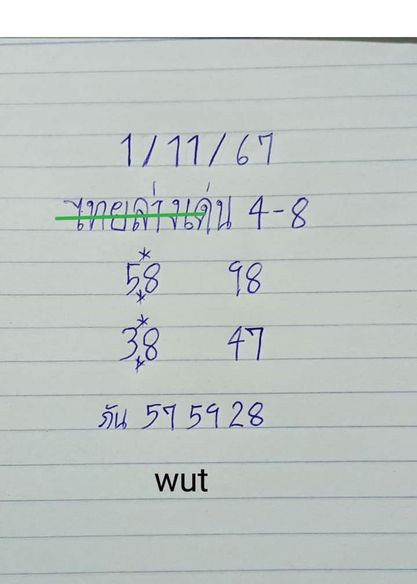 1/11/67
ไทยล่างเด่น 4-8
58 98
38 47
กัน 57 59 28
wut